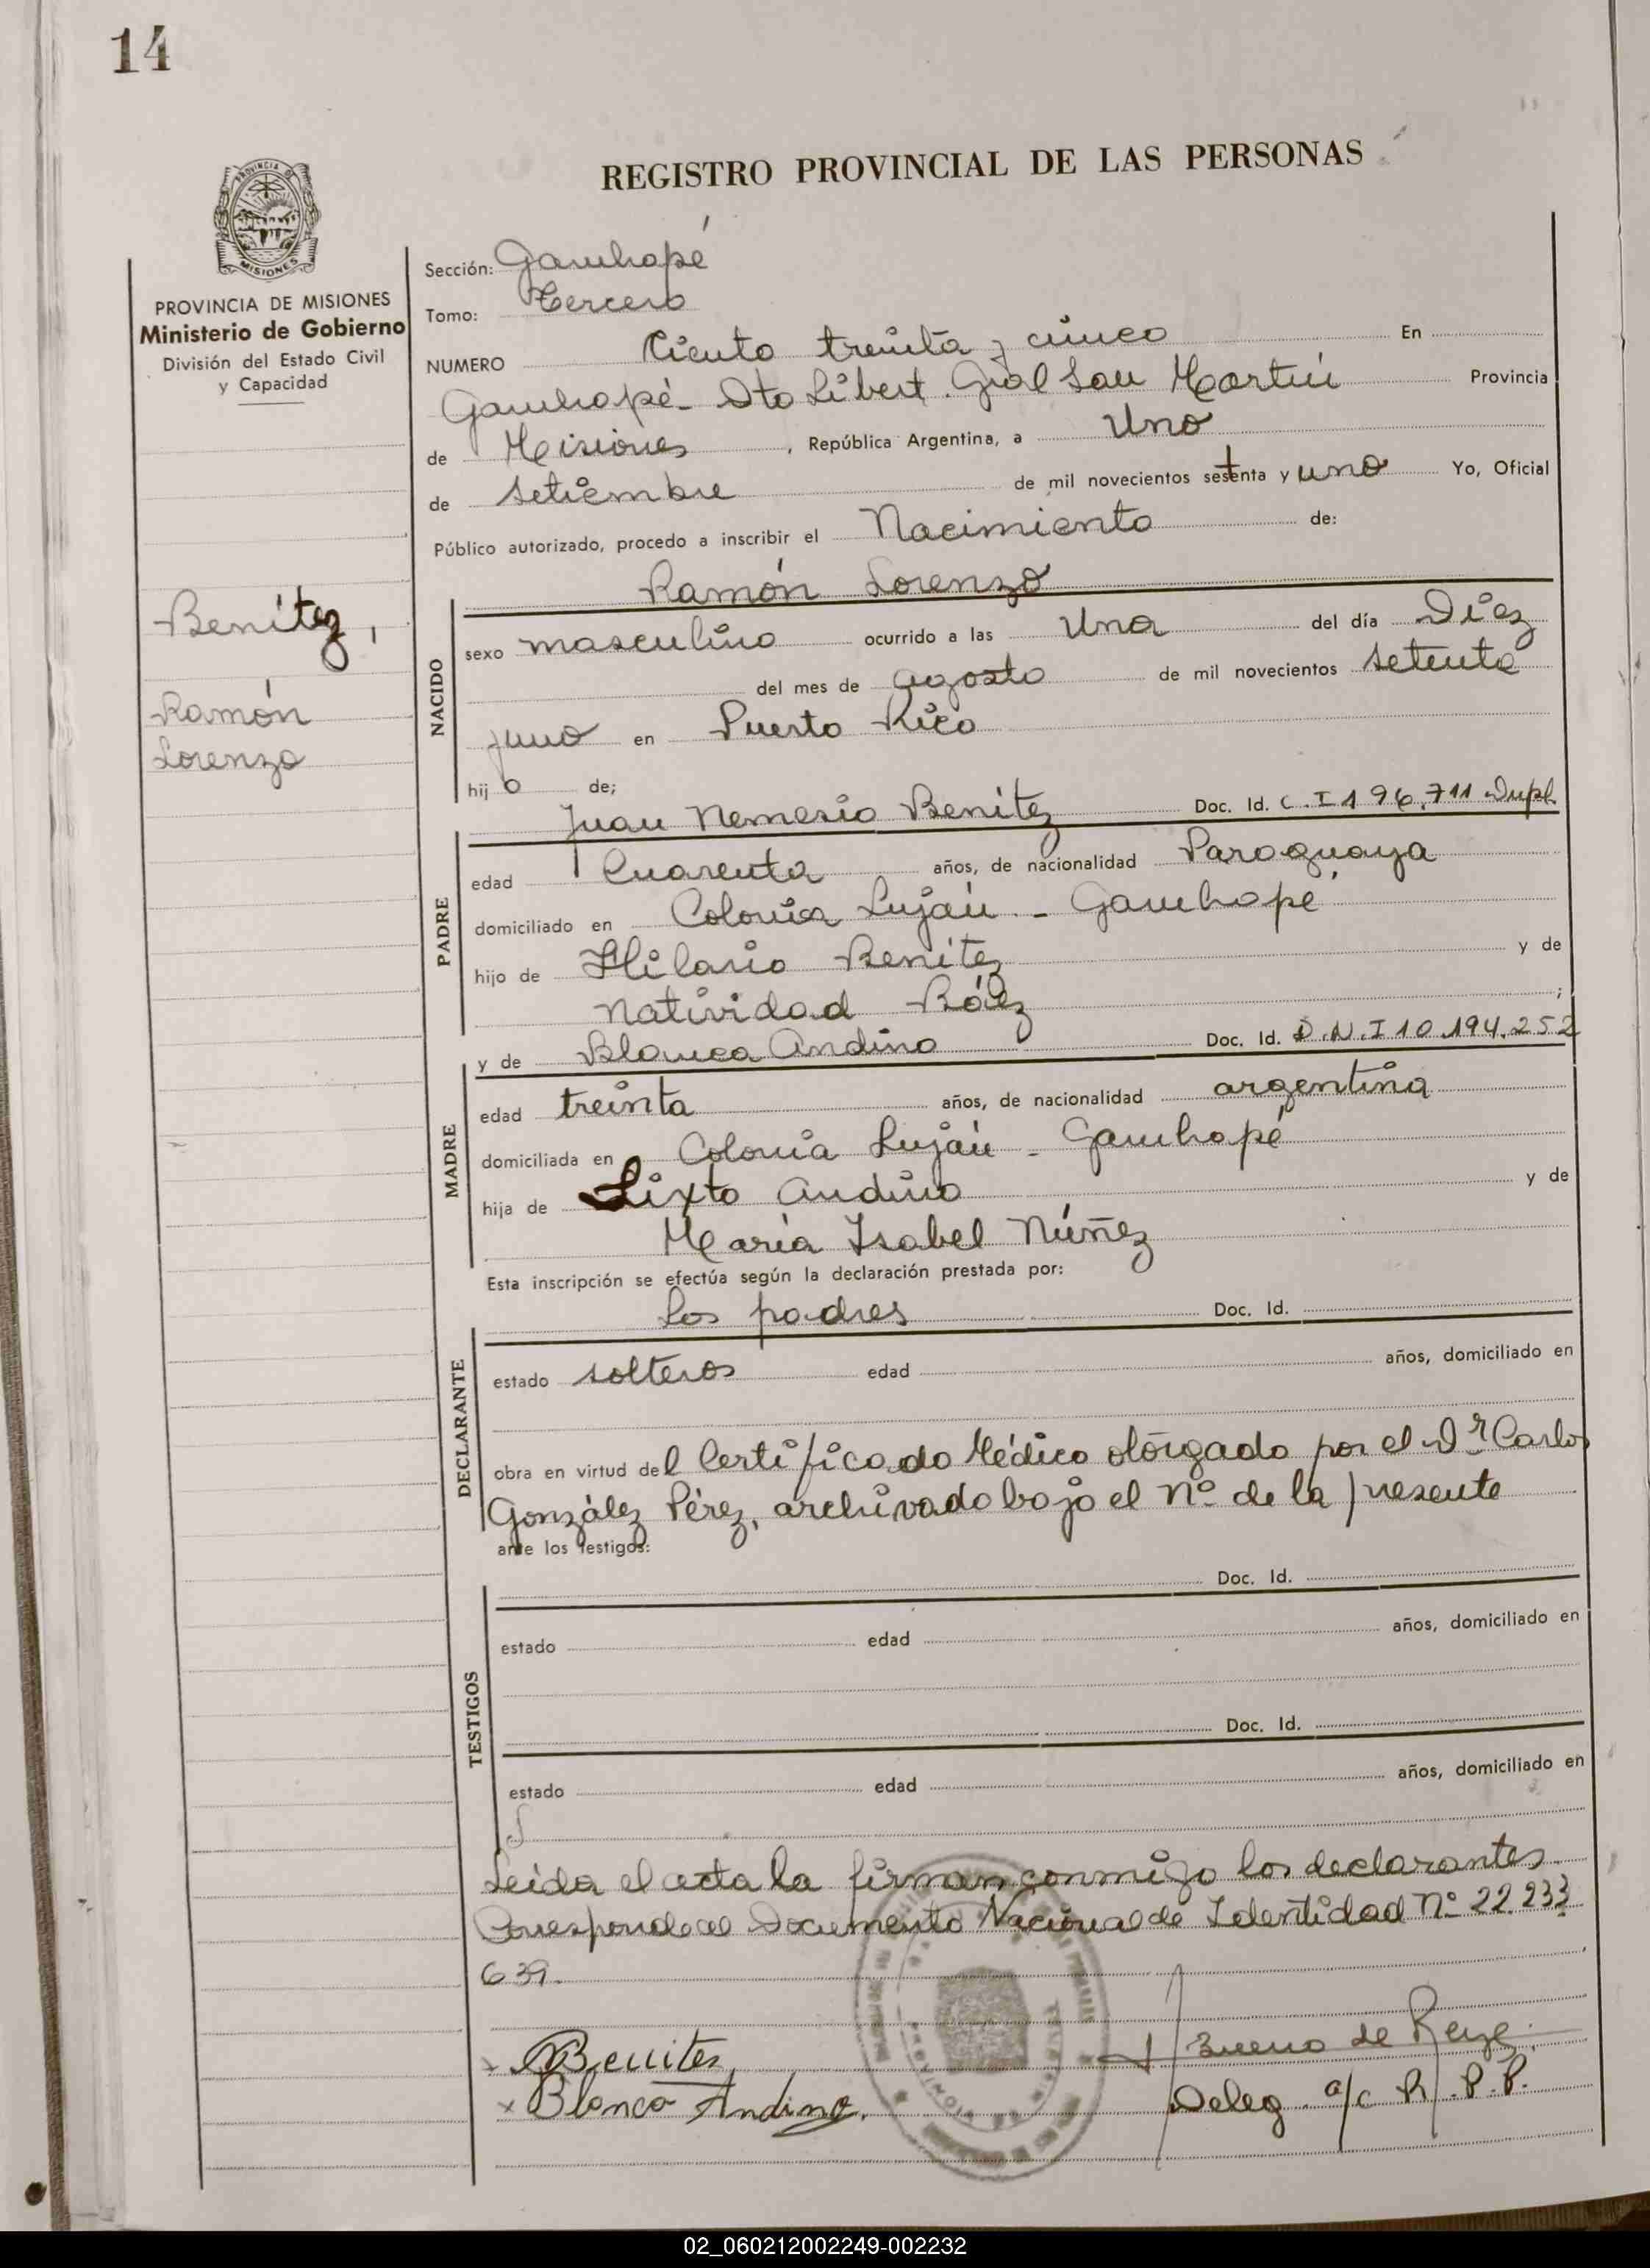 14
REGISTRO PROVINCIAL DE LAS PERSONAS
MISIONES
PROVINCIA DE MISIONES
Ministerio de Gobierno
División del Estado Civil
y Capacidad
Benítez,
Ramón
Lorenzo
Sección: Garuhapé
Tomo: Tercero
NUMERO Ciento treinta y cinco En
Garuhapé - Dto Libert. Gral San Martín Provincia
de Misiones, República Argentina, a Uno
de setiembre de mil novecientos setenta y uno Yo, Oficial
Público autorizado, procedo a inscribir el Nacimiento de:
Ramón Lorenzo
NACIDO
sexo masculino ocurrido a las Una del día Diez
del mes de agosto de mil novecientos setenta
y uno en Puerto Rico
hijo de;
Juan Nemesio Benítez Doc. Id. C.I 196.711 Dupl.
PADRE
edad Cuarenta años, de nacionalidad Paraguaya
domiciliado en Colonia Luján - Garuhapé
hijo de Hilario Benítez y de
Natividad Báez ;
y de Blanca Andino Doc. Id. D.N.I 10.194.252
MADRE
edad treinta años, de nacionalidad argentina
domiciliada en Colonia Luján - Garuhapé
hija de Sixto Andino y de
María Isabel Núñez
Esta inscripción se efectúa según la declaración prestada por:
Los padres Doc. Id.
DECLARANTE
estado solteros edad años, domiciliado en
obra en virtud del Certificado Médico otorgado por el Dr Carlos
González Pérez, archivado bajo el Nº de la presente
ante los testigos:
Doc. Id.
TESTIGOS
estado edad años, domiciliado en
Doc. Id.
estado edad años, domiciliado en
Leida el acta la firman conmigo los declarantes
Corresponde al Documento Nacional de Identidad Nº 22.233.
639.
Benites
Blanca Andino.
Bueno de Reye
Deleg. a/c R.P.P.
02_060212002249-002232